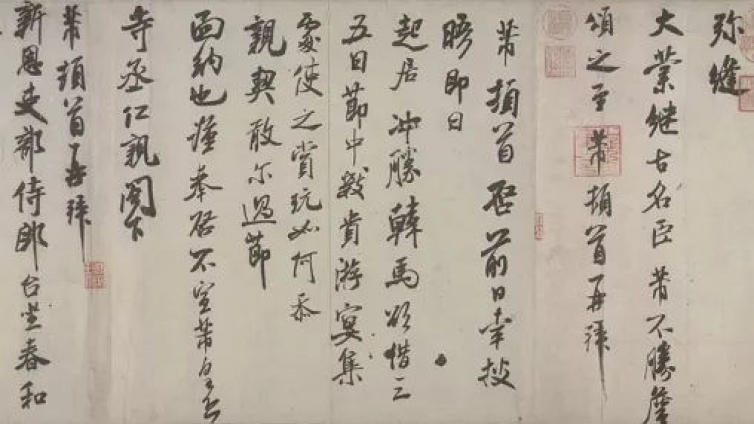 弥縫
大業继古名臣芾不勝詹
頌之至芾頓首再拜
芾頓首啓前日幸披
晤即日
起居冲勝韓馬欲借三
五日節中數貴游宴集
處使之賞玩如何忝
親契敢尔過節
面納也謹奉啓不宣芾皇恐
寺丞仁親閣下
芾頓首再拜
新恩吏部侍郎台坐春和